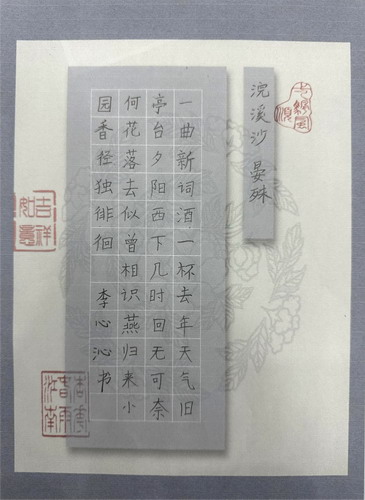 浣溪沙 晏殊
一曲新词酒一杯去年天气旧
亭台夕阳西下几时回无可奈
何花落去似曾相识燕归来小
园香径独徘徊 李心沁书
吉祥
如意